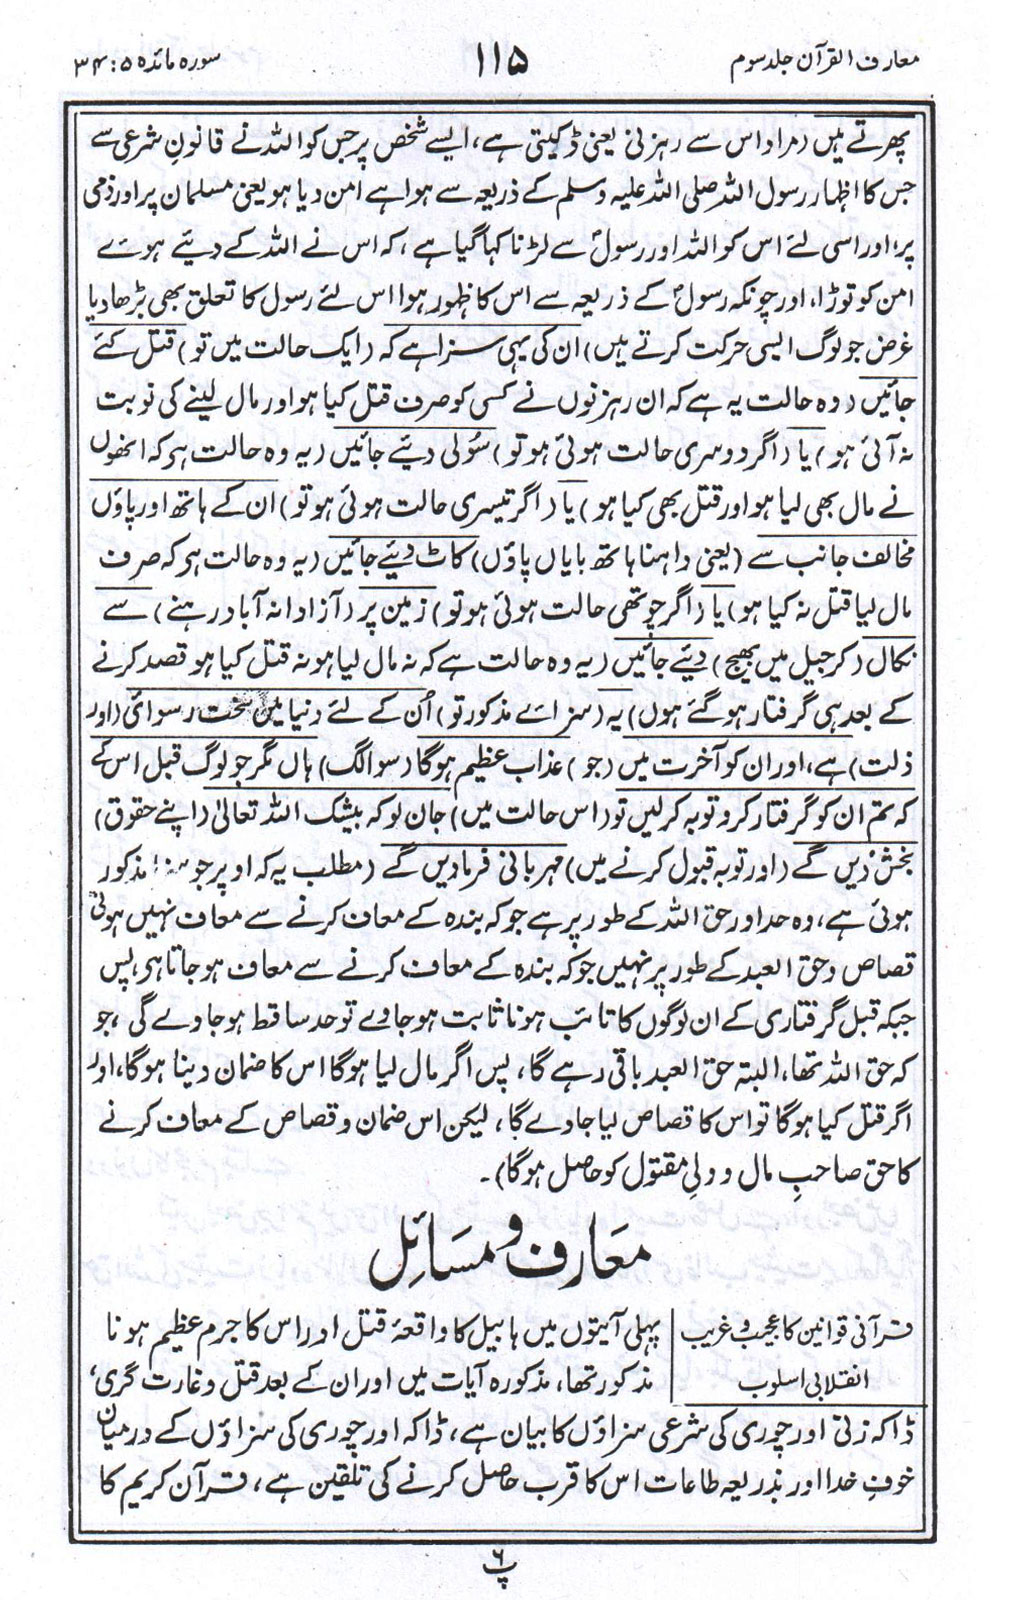 معارف القرآن جلد سوم
۱۱۵
سورہ مائدہ ۵: ۳۴
پھرتے ہیں (مراد اس سے رہزنی یعنی ڈکیتی ہے، ایسے شخص پر جس کو اللہ نے قانونِ شرعی سے
جس کا اظہار رسول اللہ صلی اللہ علیہ وسلم کے ذریعہ سے ہوا ہے امن دیا ہو یعنی مسلمان پر اور ذمی
پر، اور اسی لئے اس کو اللہ اور رسولؐ سے لڑنا کہا گیا ہے، کہ اس نے اللہ کے دئیے ہوئے
امن کو توڑا، اور چونکہ رسولؐ کے ذریعہ سے اس کا ظہور ہوا اس لئے رسول کا تعلق بھی بڑھا دیا
غرض جو لوگ ایسی حرکت کرتے ہیں) ان کی یہی سزا ہے کہ (ایک حالت میں تو) قتل کئے
جائیں (وہ حالت یہ ہے کہ ان رہزنوں نے کسی کو صرف قتل کیا ہو اور مال لینے کی نوبت
نہ آئی ہو) یا (اگر دوسری حالت ہوئی ہو تو) سُولی دئیے جائیں (یہ وہ حالت ہی کہ انھوں
نے مال بھی لیا ہو اور قتل بھی کیا ہو) یا (اگر تیسری حالت ہوئی ہو تو) ان کے ہاتھ اور پاؤں
مخالف جانب سے (یعنی داہنا ہاتھ بایاں پاؤں) کاٹ دئیے جائیں (یہ وہ حالت ہی کہ صرف
مال لیا قتل نہ کیا ہو) یا (اگر چوتھی حالت ہوئی ہو تو) زمین پر (آزادانہ آباد رہنے) سے
نکال (کر جیل میں بھیج) دئیے جائیں (یہ وہ حالت ہے کہ نہ مال لیا ہو نہ قتل کیا ہو قصد کرنے
کے بعد ہی گرفتار ہو گئے ہوں) یہ (سزائے مذکور تو) اُن کے لئے دنیا میں سخت رسوائی (اور
ذلت) ہے، اور ان کو آخرت میں (جو) عذاب عظیم ہوگا (سو الگ) ہاں مگر جو لوگ قبل اس کے
کہ تم ان کو گرفتار کرو توبہ کر لیں تو (اس حالت میں) جان لو کہ بیشک اللہ تعالیٰ (اپنے حقوق)
بخش دیں گے (اور توبہ قبول کرنے میں) مہربانی فرما دیں گے (مطلب یہ کہ اوپر جو سزا مذکور
ہوئی ہے، وہ حد اور حق اللہ کے طور پر ہے جو کہ بندہ کے معاف کرنے سے معاف نہیں ہوتی
قصاص وحق العبد کے طور پر نہیں جو کہ بندہ کے معاف کرنے سے معاف ہو جاتا ہی، پس
جبکہ قبل گرفتاری کے ان لوگوں کا تائب ہونا ثابت ہو جاوے تو حد ساقط ہو جاوے گی، جو
کہ حق اللہ تھا، البتہ حق العبد باقی رہے گا، پس اگر مال لیا ہوگا اس کا ضمان دینا ہوگا، اور
اگر قتل کیا ہوگا تو اس کا قصاص لیا جاوے گا، لیکن اس ضمان وقصاص کے معاف کرنے
کا حق صاحبِ مال و ولیِ مقتول کو حاصل ہوگا)۔
معارف و مسائل
قرآنی قوانین کا عجیب و غریب
انقلابی اسلوب
پہلی آیتوں میں ہابیل کا واقعۂ قتل اور اس کا جرم عظیم ہونا
مذکور تھا، مذکورہ آیات میں اور ان کے بعد قتل و غارت گری،
ڈاکہ زنی اور چوری کی شرعی سزاؤں کا بیان ہے، ڈاکہ اور چوری کی سزاؤں کے درمیان
خوفِ خدا اور بذریعہ طاعات اس کا قرب حاصل کرنے کی تلقین ہے، قرآن کریم کا
پ ۶